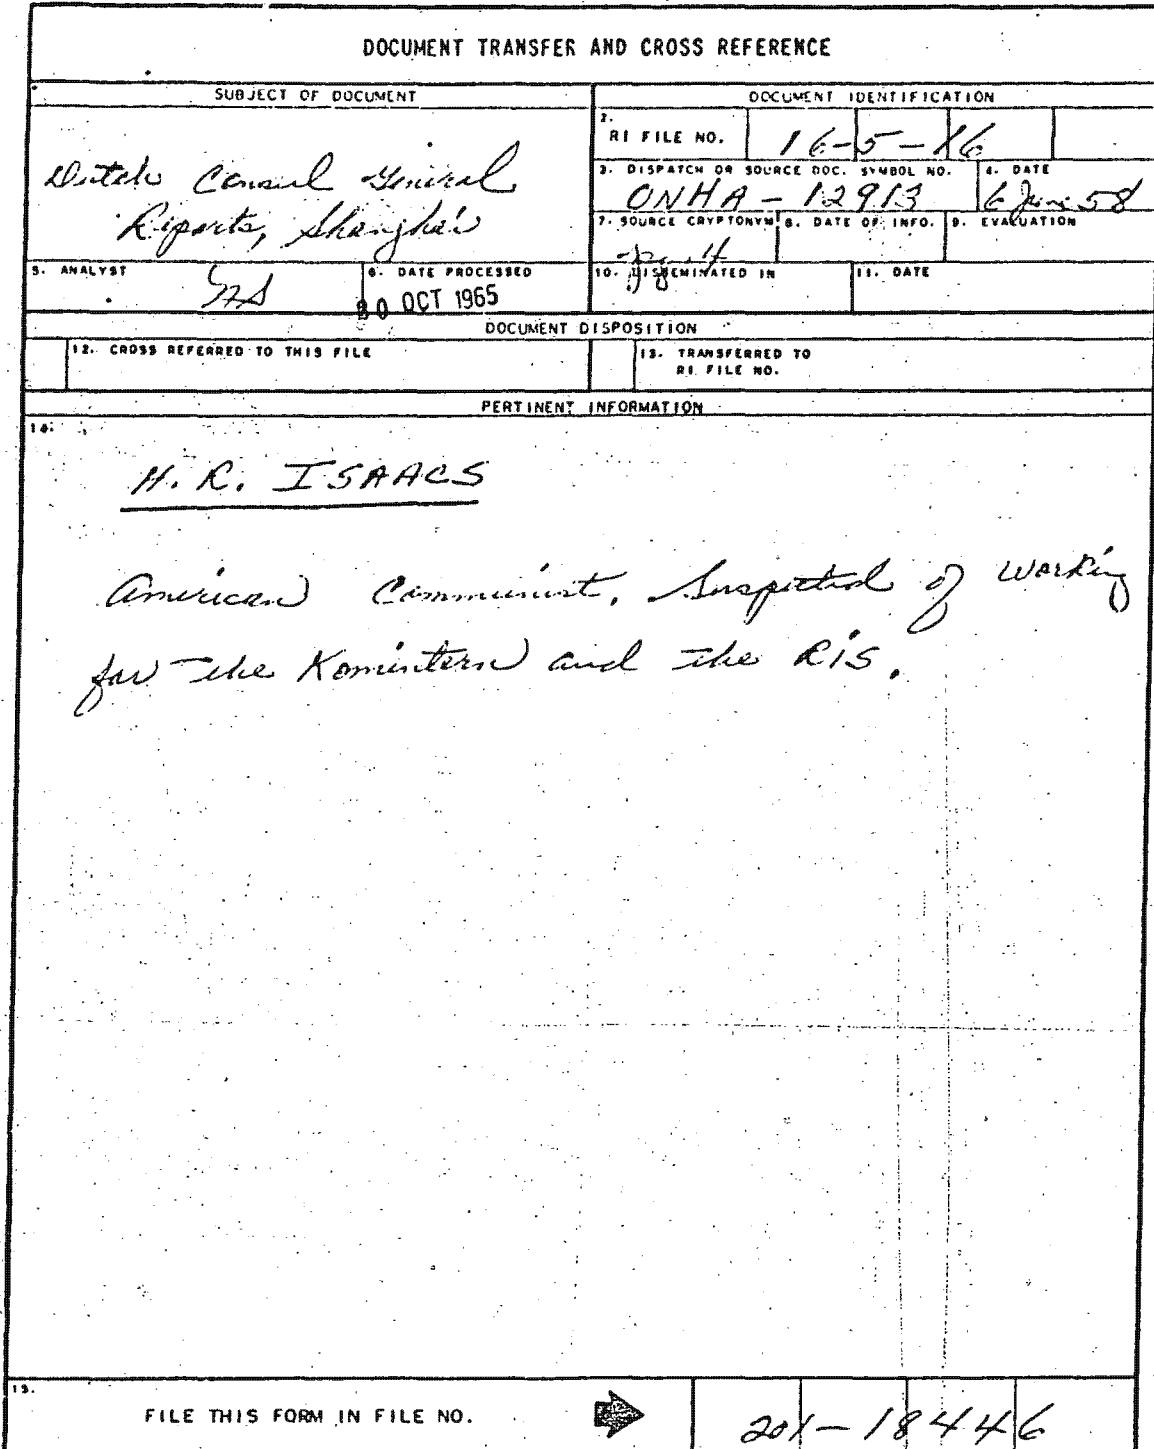 DOCUMENT TRANSFER AND CROSS REFERENCE
SUBJECT OF DOCUMENT
DOCUMENT IDENTIFICATION
Dutch Consul General
Reports, Shanghai
2. RI FILE NO. 16-5-16
3. DISPATCH OR SOURCE DOC. SYMBOL NO.
ONHA - 12913
4. DATE
6 June 58
7. SOURCE CRYPTONYM
8. DATE OF INFO.
9. EVALUATION
5. ANALYST
6. DATE PROCESSED
20 OCT 1965
10. DISSEMINATED IN
11. DATE
DOCUMENT DISPOSITION
12. CROSS REFERRED TO THIS FILE
13. TRANSFERRED TO
RI FILE NO.
PERTINENT INFORMATION
14.
H. R. ISAACS
American Communist. Suspected of working
for the Komintern and the RIS.
15.
FILE THIS FORM IN FILE NO.
201-18446